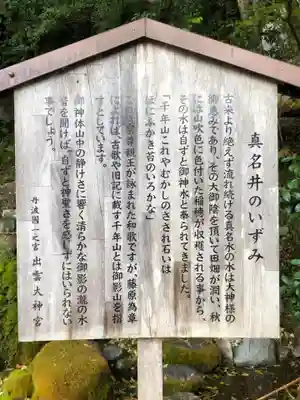 真名井のいずみ
古来より絶えず流れ続ける真名水の水は大神様の
御恵みであり、その大御陰を頂いて田畑が潤い、秋
には山吹色に色付いた稲穂が収穫される事から、
その水は自ずと御神水と奉られてきました。
「千年山これやむかしのさざれ石いは
ほにふかき苔のいろかな」
親王が詠まれた和歌ですが、藤原為章
によれば、古歌や旧記に載す千年山とは御影山を指
すとしています。
御神体山中の静けさに響く清らかな御影の滝の水
音を聞けば、自ずと神聖さを感じずにはいられない
事でしょう。
丹波國一之宮 出雲大神宮